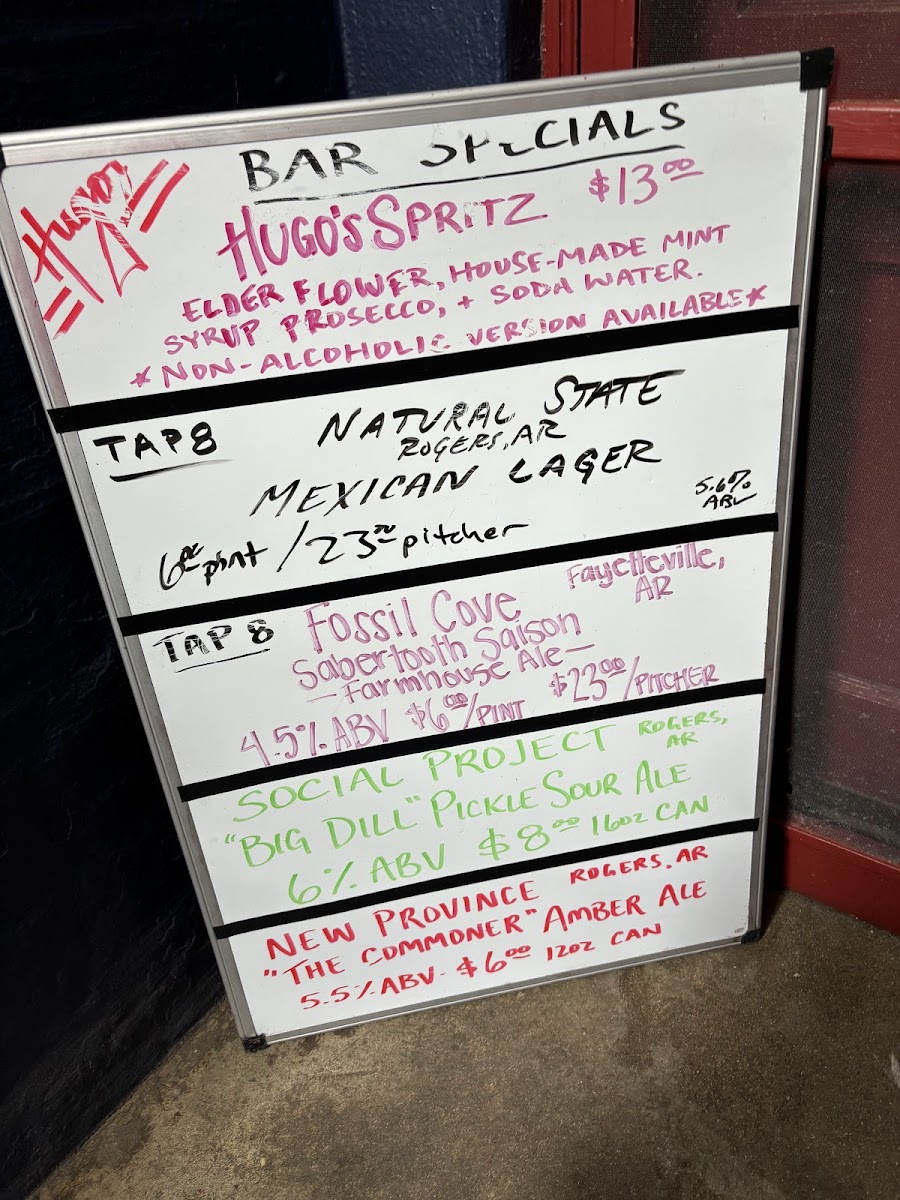 Hugo's
BAR SPECIALS
HUGO'S SPRITZ $13.00
ELDER FLOWER, HOUSE-MADE MINT
SYRUP PROSECCO, + SODA WATER.
*NON-ALCOHOLIC VERSION AVAILABLE*
TAP 8 NATURAL STATE
ROGERS, AR
MEXICAN LAGER
5.6% ABV
6.00 pint / 23.00 pitcher
TAP 8 Fossil Cove Fayetteville, AR
Sabertooth Saison
—Farmhouse Ale—
4.5% ABV $6.00/PINT $23.00/PITCHER
SOCIAL PROJECT ROGERS, AR
"BIG DILL" PICKLE SOUR ALE
6% ABV $8.00 16oz CAN
NEW PROVINCE ROGERS, AR
"THE COMMONER" AMBER ALE
5.5% ABV- $6.00 12oz CAN